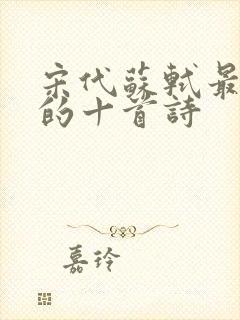 宋代蘇軾最
的十首詩
嘉玲